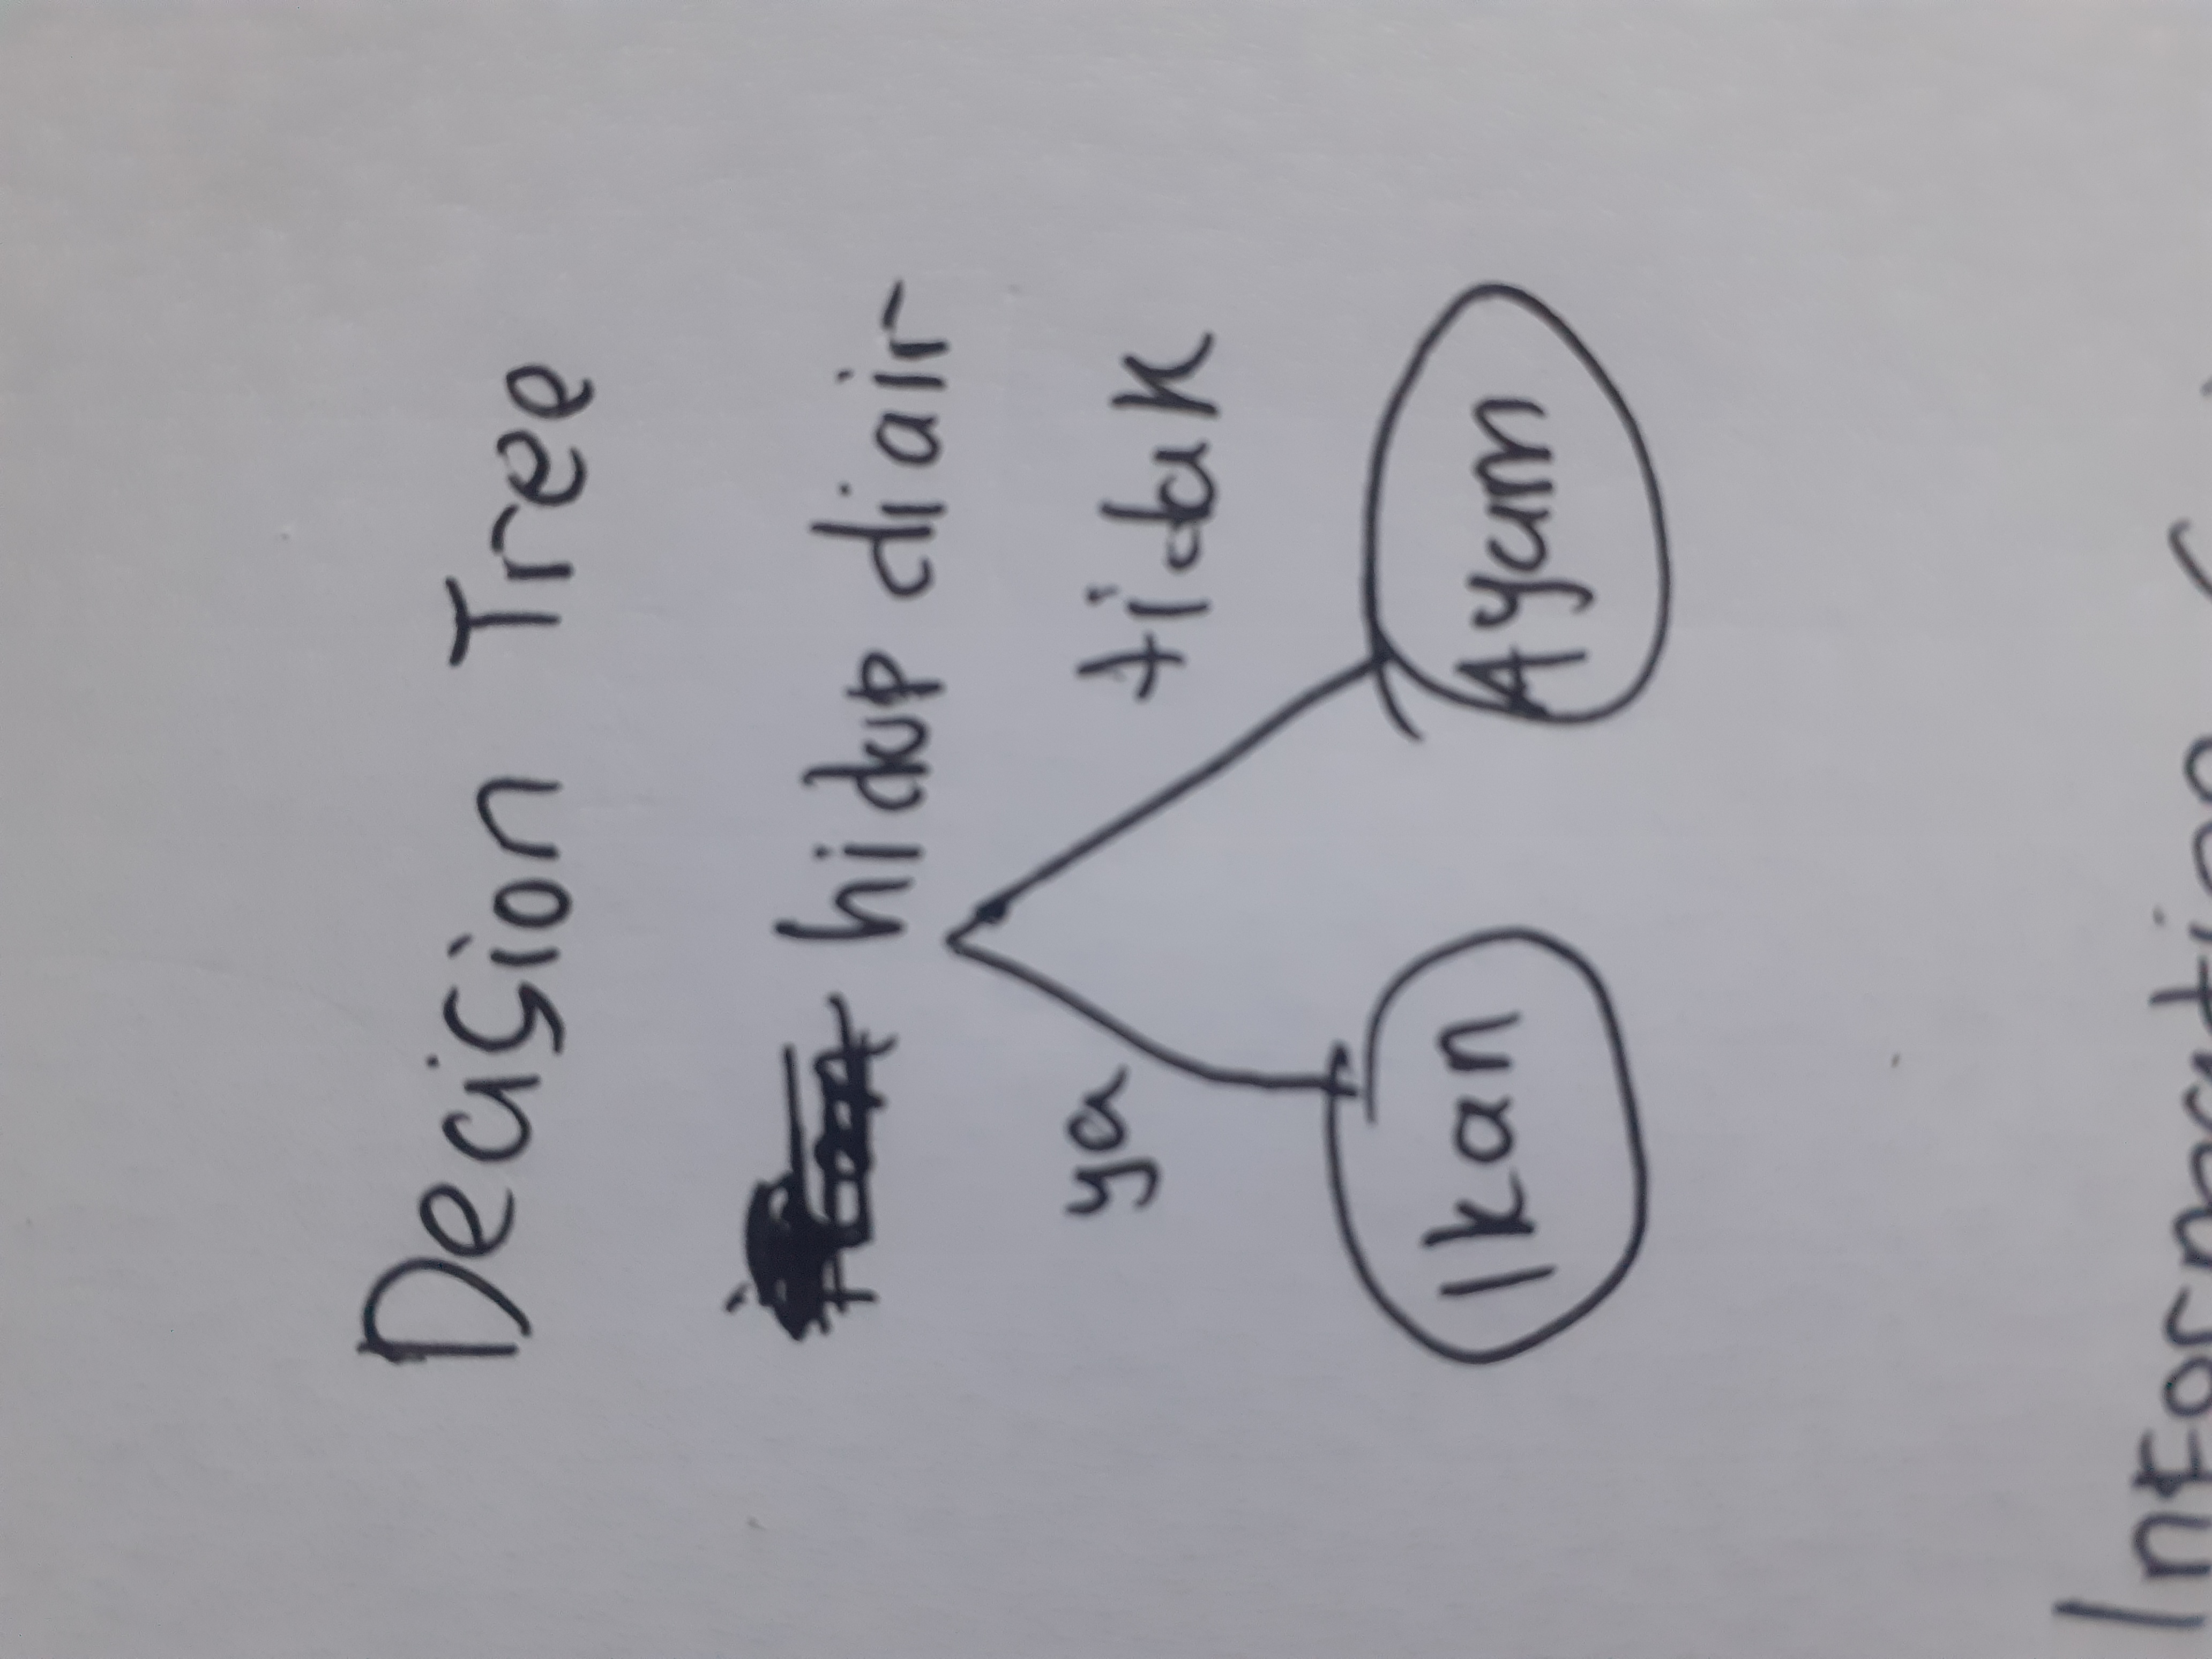 Decision Tree
hidup di air
ya tidak
Ikan Ayam
Information